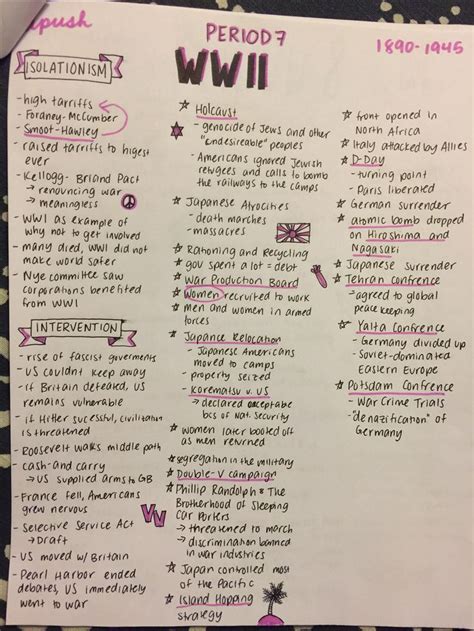 apush
PERIOD 7
1890-1945
WWII
ISOLATIONISM
- high tarriffs
- Foraney-McCumber
- Smoot-Hawley
- raised tarriffs to higest
ever
- Kellogg-Briand Pact
→ renouncing war
→ meaningless
- WWI as example of
why not to get involved
- many died, WWI did not
make world safer
- Nye committee saw
corporations benefited
from WWI
INTERVENTION
- rise of fascist goverments
- US couldnt keep away
- if Britain defeated, US
remains vulnerable
- if Hitler sucessful, civilitation
is threatened
- Roosevelt walks middle path
- cash-and carry
→ US supplied arms to GB
- France fell, Americans
grew nervous
- Selective Service Act
→ Draft
- US moved w/ Britain
- Pearl Harbor ended
debates, US immediately
went to war
☆ Holcaust
- genocide of Jews and other
"undesireable" peoples
- Americans ignored Jewish
refugees and calls to bomb
the railways to the camps
☆ Japanese Atrocities
- death marches
- massacres
☆ Rationing and Recycling
☆ gov spent a lot = debt
☆ War Production Board
☆ Women recruited to work
☆ men and women in armed
forces
☆ Japance Relocation
- Japanese Americans
moved to camps
- property seized
- Korematsu v. US
→ declared acceptable
bcs of Nat. Security
☆ women later booted off
as men returned
☆ segregation in the military
☆ Double-V campaign
VV
☆ Phillip Randolph & The
Brotherhood of Sleeping
Car Porters
→ threatened to march
→ discrimination banned
in war industries
☆ Japan controlled most
of the Pacific
☆ Island Hopping
strategy
☆ front opened in
North Africa
☆ Italy attacked by Allies
☆ D-Day
- turning point
- Paris liberated
☆ German surrender
☆ atomic bomb dropped
on Hiroshima and
Nagasaki
☆ Japanese surrender
☆ Tehran Confrence
→ agreed to global
peace keeping
☆ Yalta Confrence
- Germany divided up
- Soviet-dominated
Eastern Europe
☆ Potsdam Confrence
- War Crime Trials
- "denazification" of
Germany